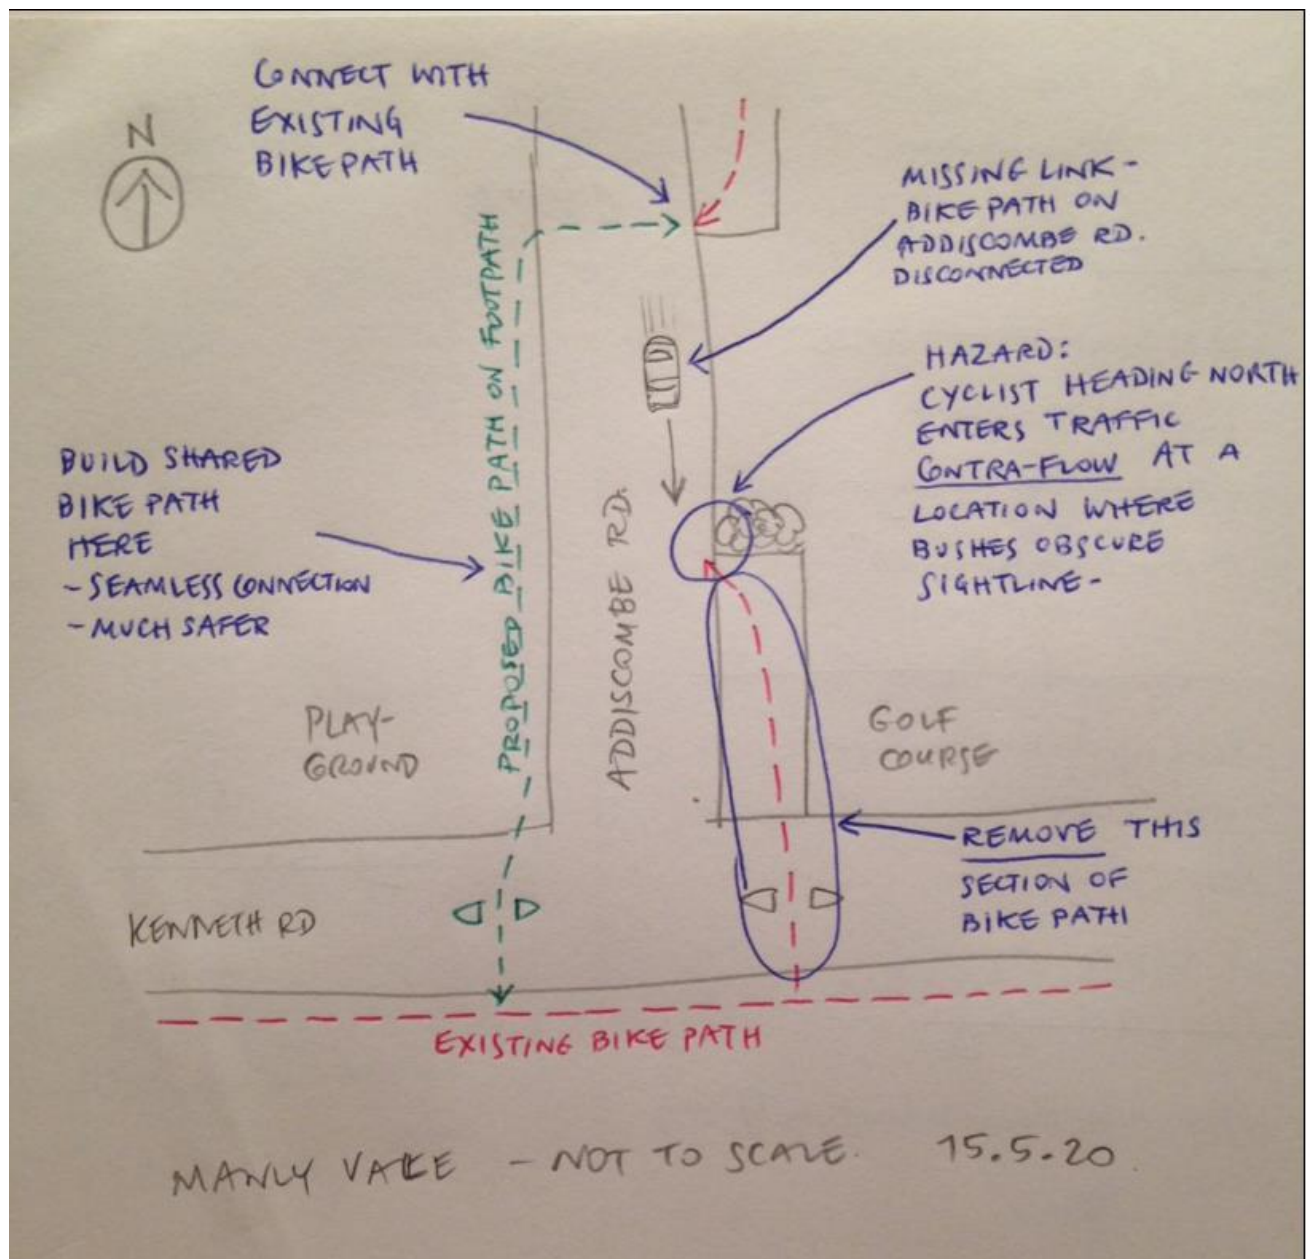 CONNECT WITH
EXISTING
BIKE PATH
N
MISSING LINK -
BIKE PATH ON
ADDISCOMBE RD.
DISCONNECTED
HAZARD:
CYCLIST HEADING NORTH
ENTERS TRAFFIC
CONTRA-FLOW AT A
LOCATION WHERE
BUSHES OBSCURE
SIGHTLINE -
BUILD SHARED
BIKE PATH
HERE
- SEAMLESS CONNECTION
- MUCH SAFER
PROPOSED BIKE PATH ON FOOTPATH
ADDISCOMBE RD.
PLAY-
GROUND
GOLF
COURSE
REMOVE THIS
SECTION OF
BIKE PATH
KENNETH RD
EXISTING BIKE PATH
MANLY VALE - NOT TO SCALE. 15.5.20.